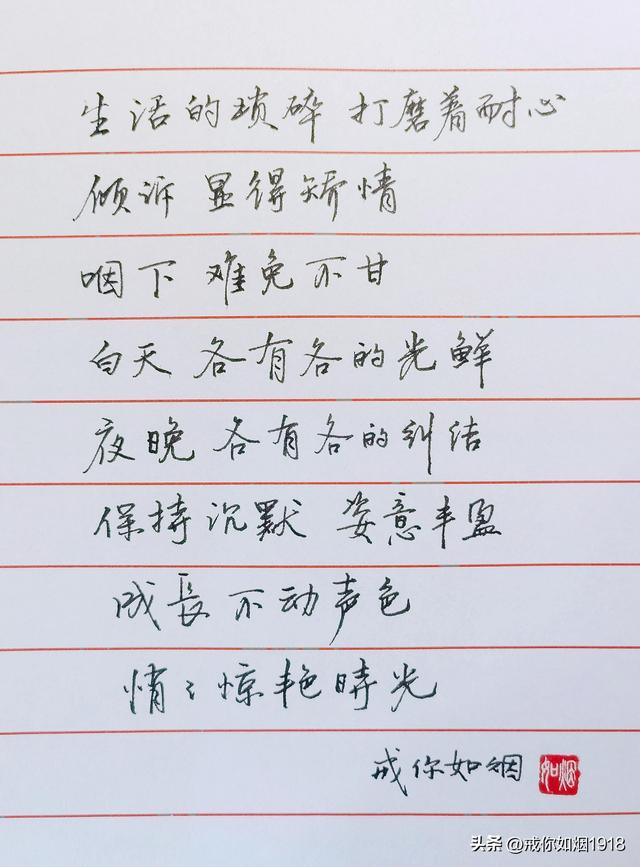 生活的琐碎 打磨着耐心
倾诉 显得矫情
咽下 难免不甘
白天 各有各的光鲜
夜晚 各有各的纠结
保持沉默 姿意丰盈
成長 不动声色
悄々惊艳時光
戒你如烟
如烟
头条 @戒你如烟1918